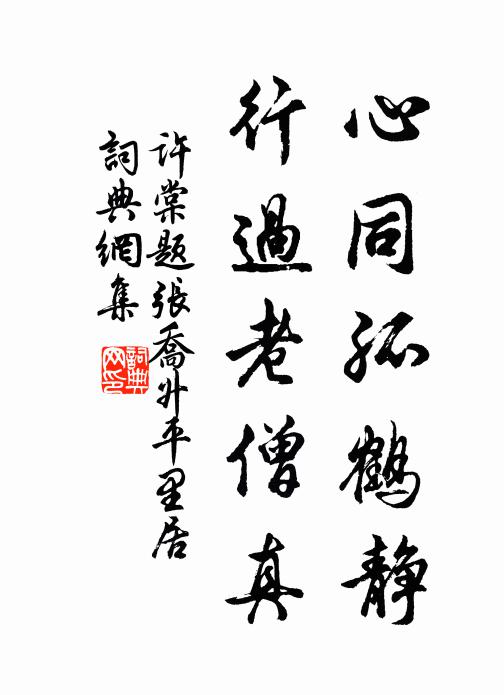 心同孤鶴静
行過老僧真
許棠題張喬升平里居
詞典網集
詞典
网印